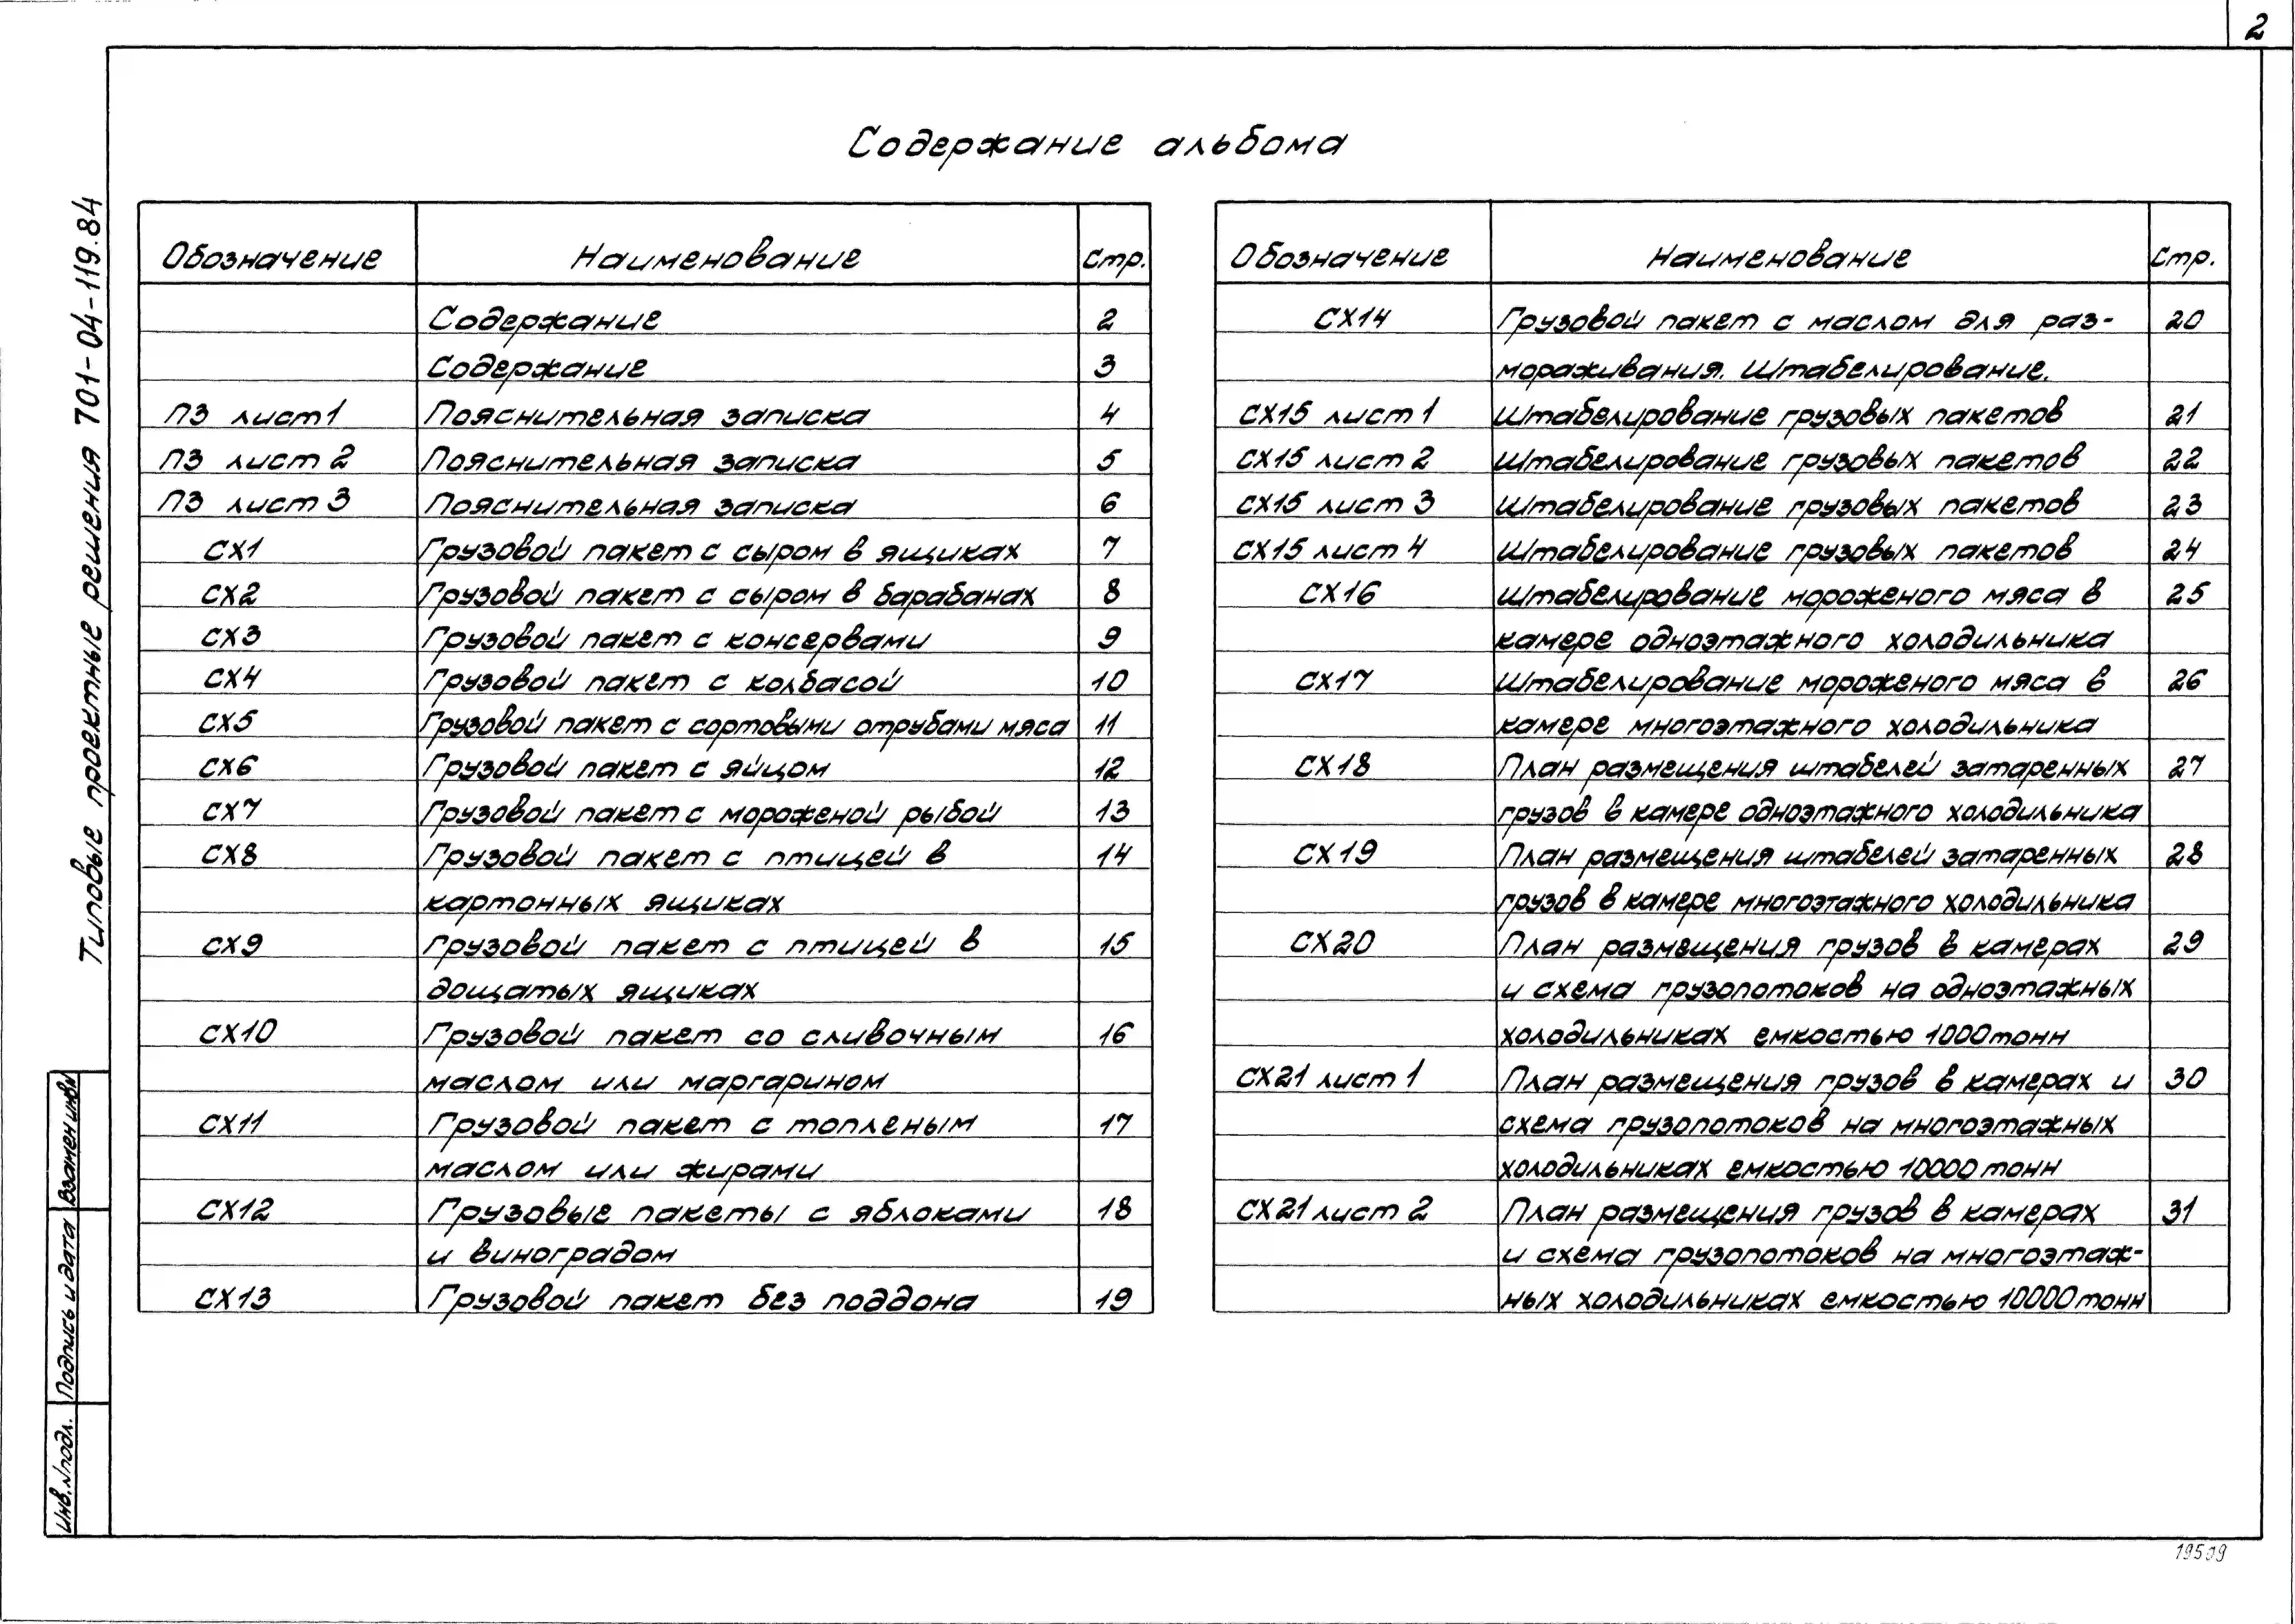 2
Содержание альбома
Типовые проектные решения 701-04-119.84
Обозначение Наименование Стр.
Содержание 2
Содержание 3
ПЗ лист 1 Пояснительная записка 4
ПЗ лист 2 Пояснительная записка 5
ПЗ лист 3 Пояснительная записка 6
СХ1 Грузовой пакет с сыром в ящиках 7
СХ2 Грузовой пакет с сыром в барабанах 8
СХ3 Грузовой пакет с консервами 9
СХ4 Грузовой пакет с колбасой 10
СХ5 Грузовой пакет с сортовыми отрубами мяса 11
СХ6 Грузовой пакет с яйцом 12
СХ7 Грузовой пакет с мороженой рыбой 13
СХ8 Грузовой пакет с птицей в 14
картонных ящиках
СХ9 Грузовой пакет с птицей в 15
дощатых ящиках
СХ10 Грузовой пакет со сливочным 16
маслом или маргарином
СХ11 Грузовой пакет с топленым 17
маслом или жирами
СХ12 Грузовые пакеты с яблоками 18
и виноградом
СХ13 Грузовой пакет без поддона 19
Обозначение Наименование Стр.
СХ14 Грузовой пакет с маслом для раз- 20
мораживания. Штабелирование.
СХ15 лист 1 Штабелирование грузовых пакетов 21
СХ15 лист 2 Штабелирование грузовых пакетов 22
СХ15 лист 3 Штабелирование грузовых пакетов 23
СХ15 лист 4 Штабелирование грузовых пакетов 24
СХ16 Штабелирование мороженого мяса в 25
камере одноэтажного холодильника
СХ17 Штабелирование мороженого мяса в 26
камере многоэтажного холодильника
СХ18 План размещения штабелей затаренных 27
грузов в камере одноэтажного холодильника
СХ19 План размещения штабелей затаренных 28
грузов в камере многоэтажного холодильника
СХ20 План размещения грузов в камерах 29
и схема грузопотоков на одноэтажных
холодильниках емкостью 1000 тонн
СХ21 лист 1 План размещения грузов в камерах и 30
схема грузопотоков на многоэтажных
холодильниках емкостью 10000 тонн
СХ21 лист 2 План размещения грузов в камерах 31
и схема грузопотоков на многоэтаж-
ных холодильниках емкостью 10000 тонн
Взамен инв.№
Подпись и дата
Инв.№подл.
19509